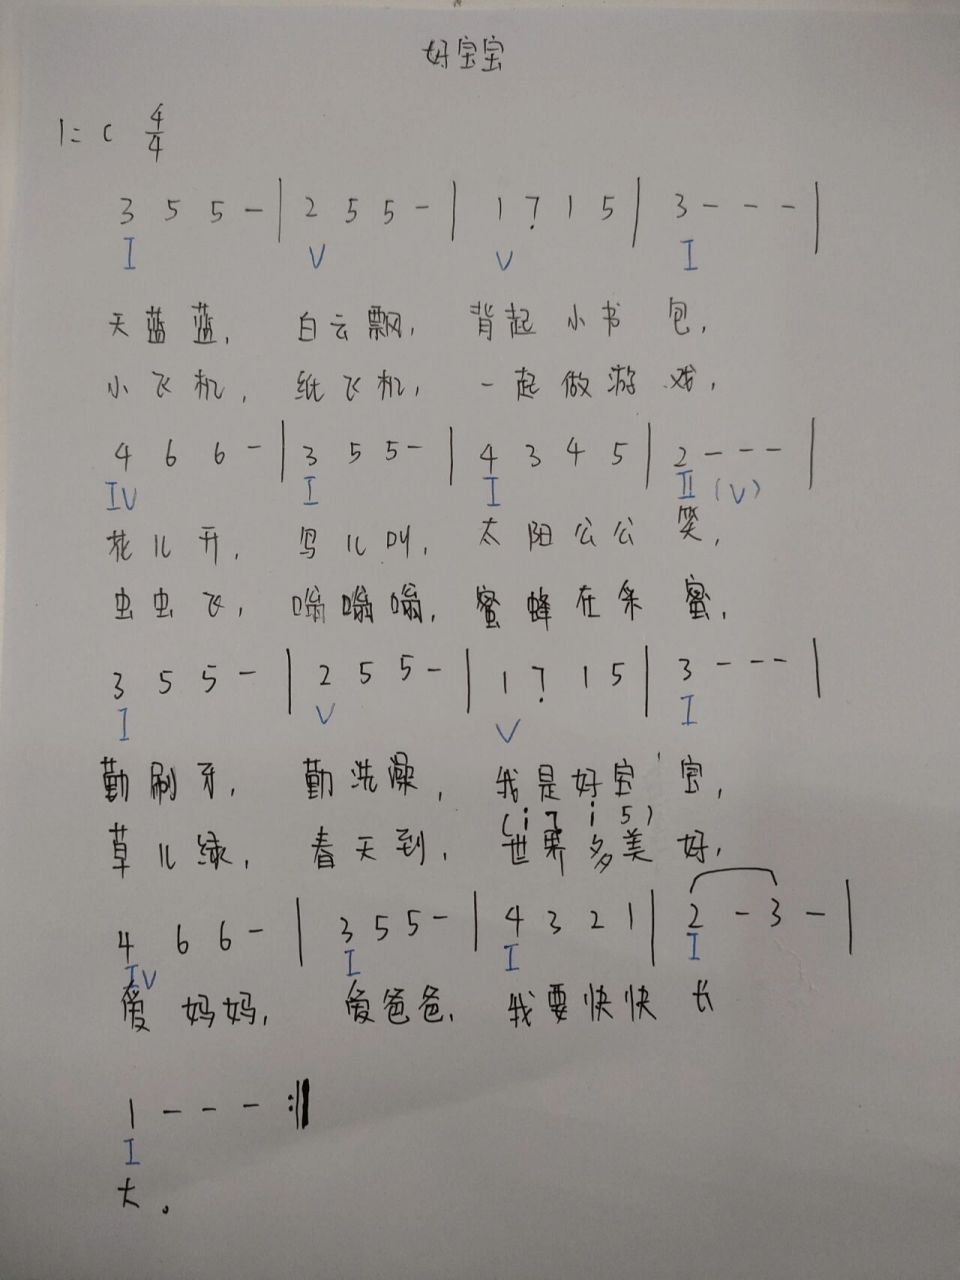 好宝宝
1=C 4/4
3 5 5 - | 2 5 5 - | 1 7̣ 1 5 | 3 - - - |
I V V I
天蓝蓝, 白云飘, 背起小书包,
小飞机, 纸飞机, 一起做游戏,
4 6 6 - | 3 5 5 - | 4 3 4 5 | 2 - - - |
IV I I II (V)
花儿开, 鸟儿叫, 太阳公公笑,
虫虫飞, 嗡嗡嗡, 蜜蜂在采蜜,
3 5 5 - | 2 5 5 - | 1 7̣ 1 5 | 3 - - - |
I V V I
勤刷牙, 勤洗澡, 我是好宝宝,
(i 7 i 5)
草儿绿, 春天到, 世界多美好,
4 6 6 - | 3 5 5 - | 4 3 2 1 | 2 - 3 - |
IV I I I
爱妈妈, 爱爸爸, 我要快快长
1 - - - :||
I
大。